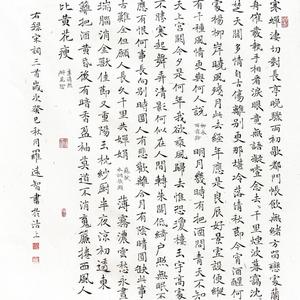 寒蟬淒切對長亭晚驟雨初歇都門帳飲無緒方留戀處蘭
舟催發執手相看淚眼竟無語凝噎念去去千里煙波暮靄沉沉
楚天闊多情自古傷離別更那堪冷落清秋節今宵酒醒何
處楊柳岸曉風殘月此去經年應是良辰好景虛設便縱
有千種風情更與何人說 柳永 雨霖鈴 明月幾時有把酒問青天不知
天上宮闕今夕是何年我欲乘風歸去惟恐瓊樓玉宇高處
不勝寒起舞弄清影何似在人間轉朱閣低綺戶照無眠不
應有恨何事長向別時圓人有悲歡離合月有陰晴圓缺此事
古難全但願人長久千里共嬋娟 蘇軾 水調歌頭 薄霧濃雲愁永晝
瑞腦消金獸佳節又重陽玉枕紗廚半夜涼初透東
籬把酒黃昏後有暗香盈袖莫道不消魂簾捲西風人
比黃花瘦 李清照 醉花陰
右錄宋詞三首歲次癸巳秋月 遠智書於 上